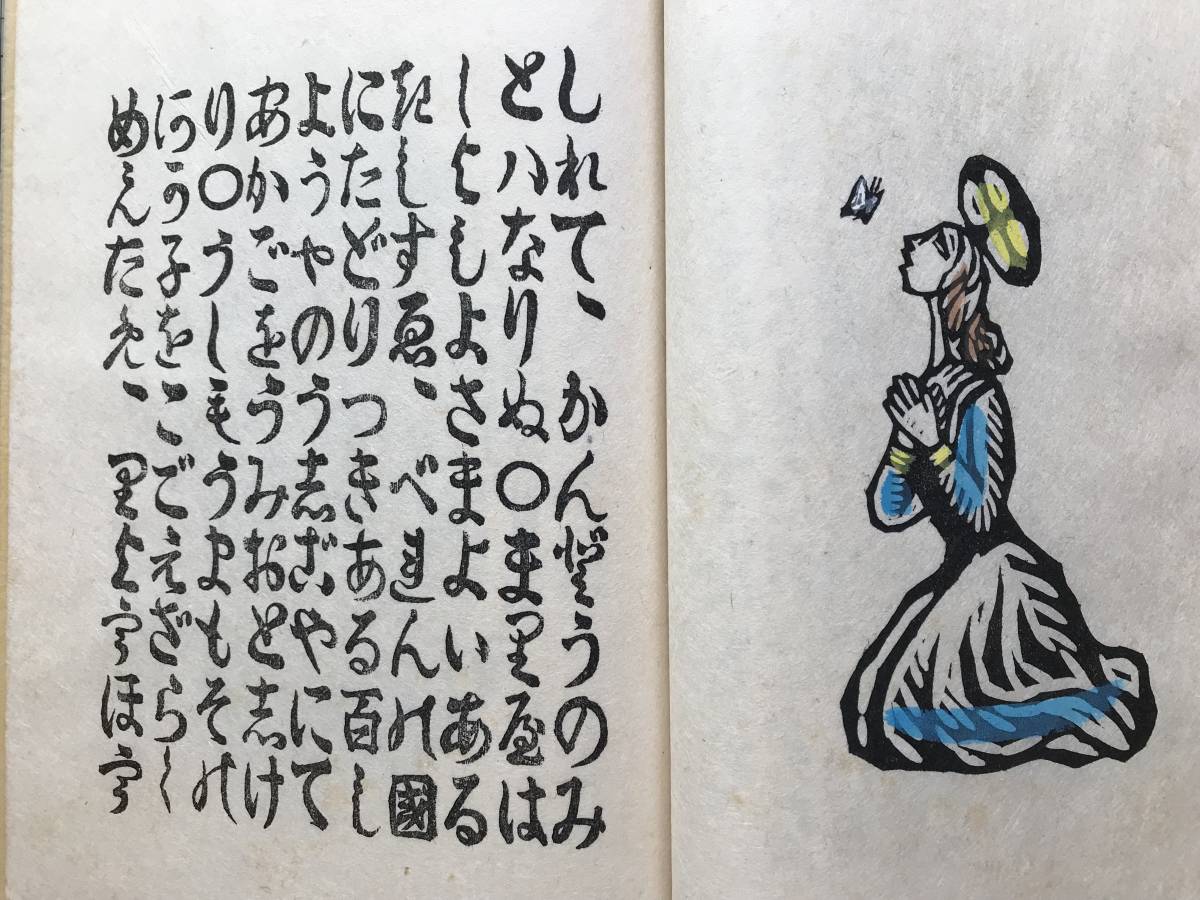 しれて、かん登うのみ
とハなりぬ〇ま里屋は
しよしよさまよいある
きしすゑ、べれんの國
にたどりつきある百し
ようやのう志ごやにて
あかごをうみおと志け
り〇うしもうまもその
あか子をこごえざらし
めんため、里ようほう